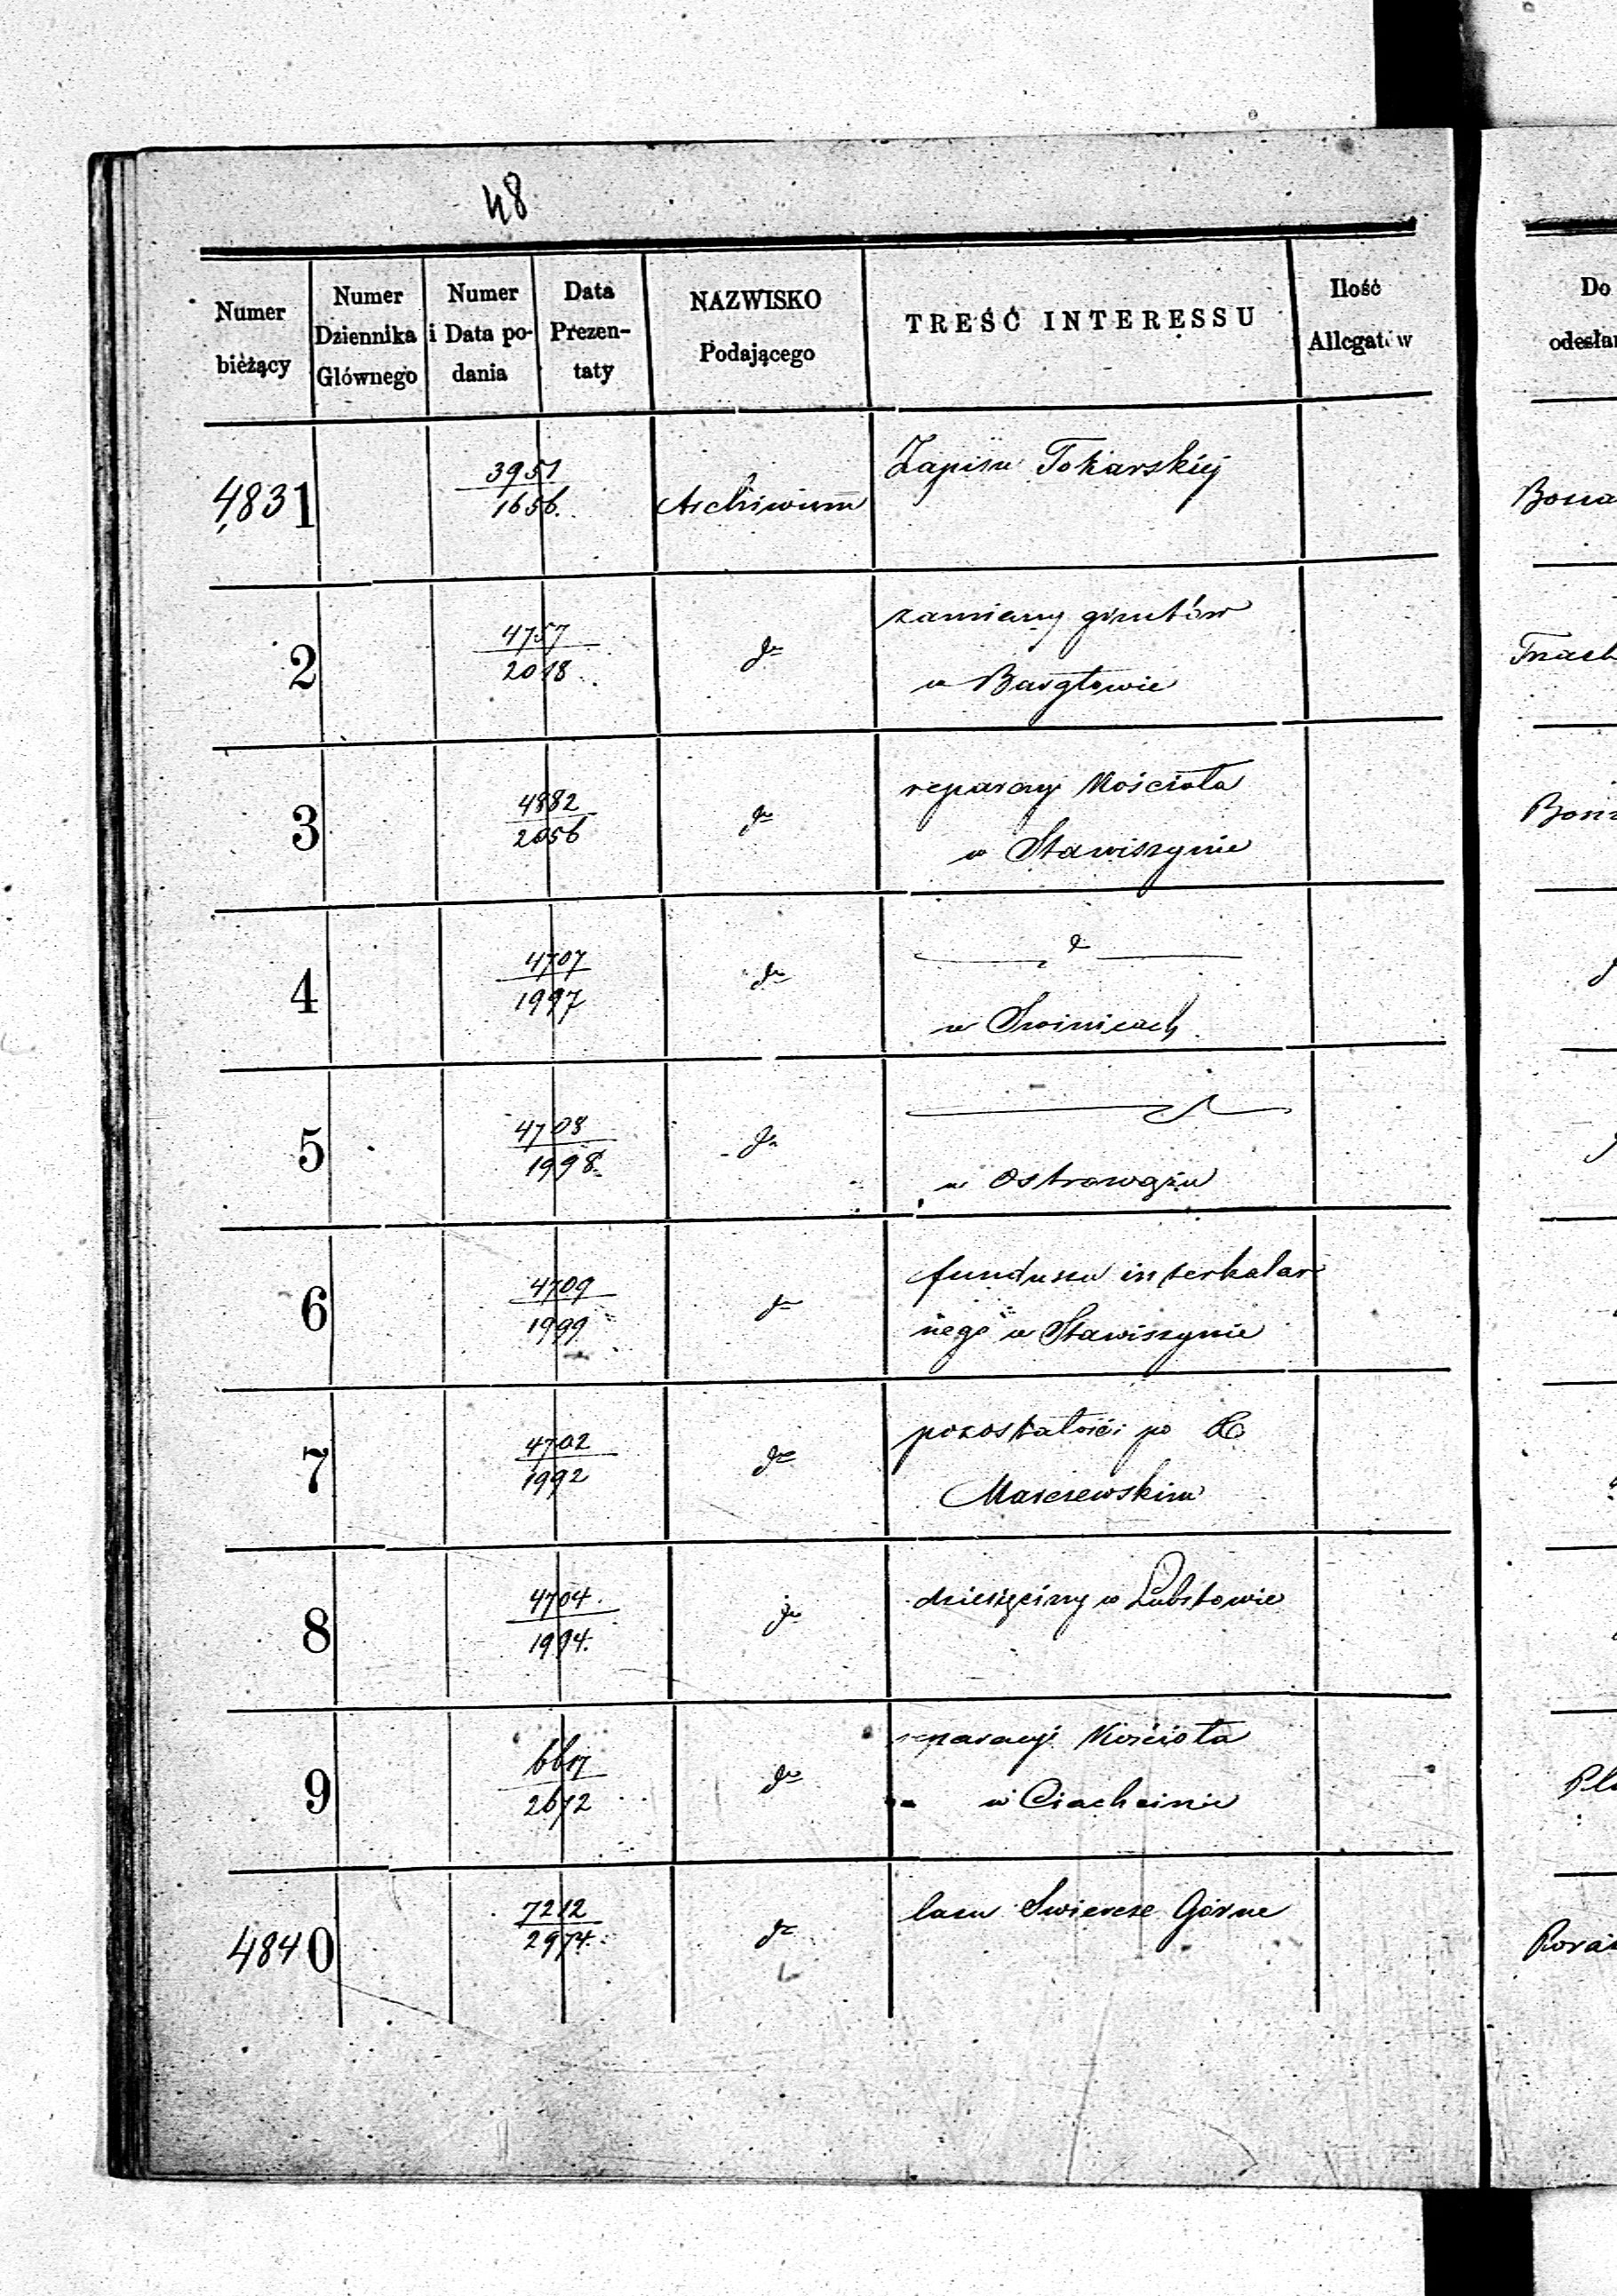 48
Numer bieżący
Numer Dziennika Głównego
Numer i Data podania
Data Prezentaty
NAZWISKO Podającego
TREŚĆ INTERESSU
Ilość Allegatów
Do
odesłan
4831 3951 / 1656. Archiwum Zapisu Tokarskiej
2 4757 / 2018 do zamiany gruntów
w Bargłowie
3 4882 / 2056 do reparacyi Kościoła
w Stawiszynie
4 4707 / 1997 do
w Swinicach
5 4708 / 1998 do
w Ostrowążu
6 4709 / 1999 do funduszu interkalar
nego w Stawiszynie
7 4702 / 1992 do pozostałości po X
Marczewskim
8 4704 / 1994. do dziesięciny w Lubstowie
9 2672 do reparacyi Kościoła
w Ciachcinie
4840 7212 / 2974. do lasu Swiercze Górne